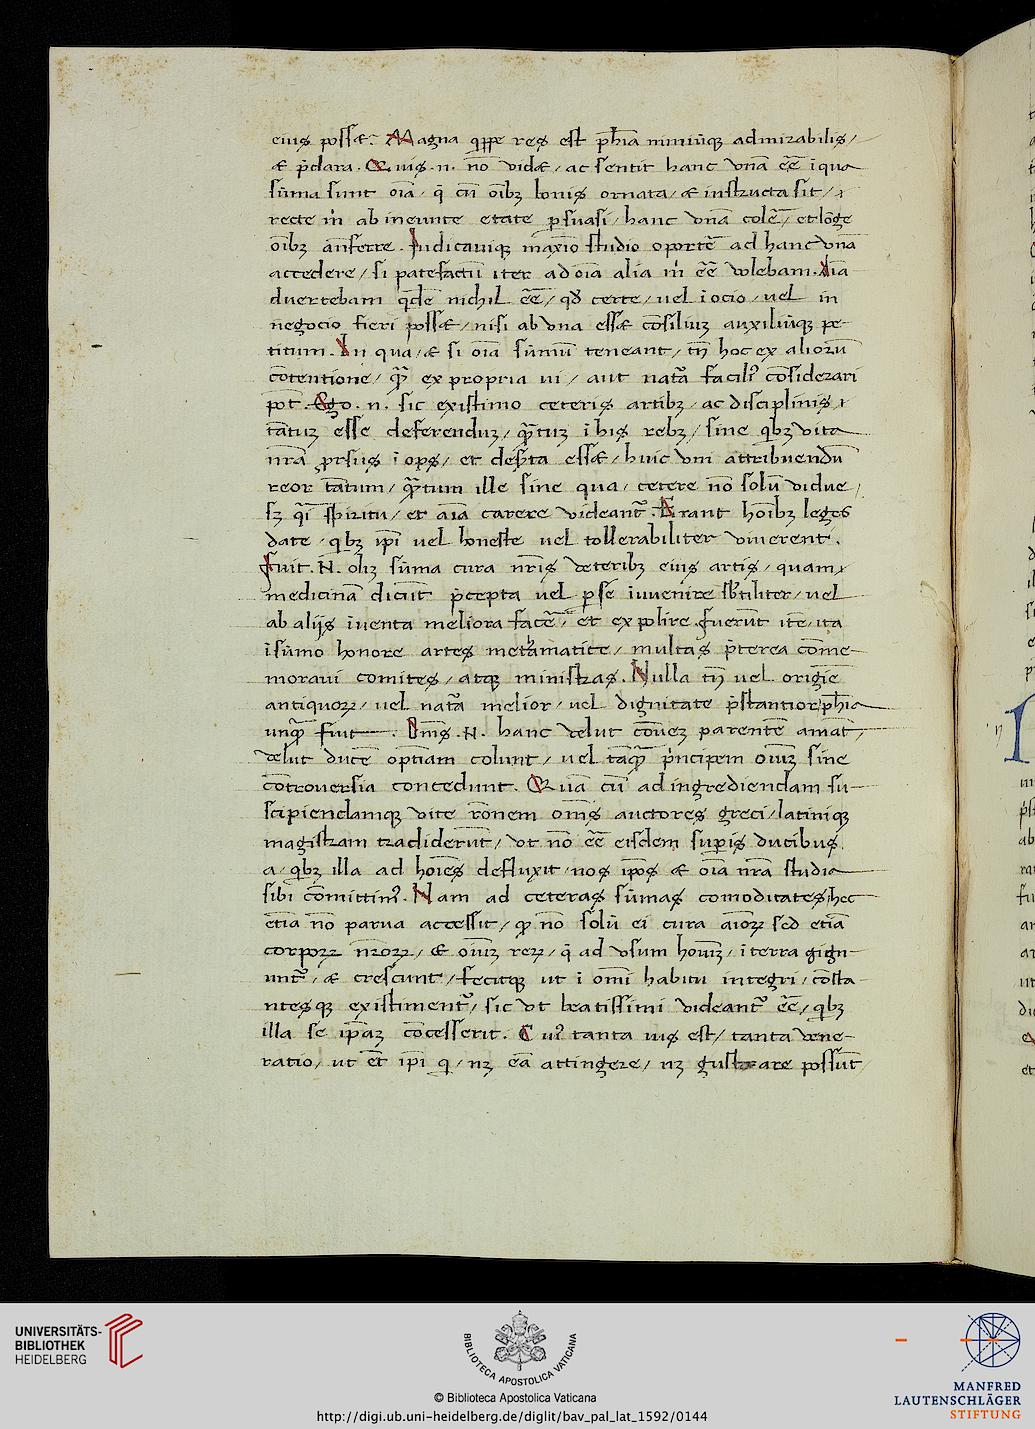 eius possæ. Magna q̄ppe res est ph̄ia nimiūq admirabilis/
æ p̄clara. Quis .n. nō vidæ/ ac sentit hanc vnā eē ī qua
sūma sunt oīa/ q̄ cū oībꝫ bonis ornata/ æ instructa sit/
recte m̄ ab ineunte etate ꝑsuasi/ hanc vnā colē/ et lōge
oībꝫ anferre. Iudicauiqꝫ maxīo studio oportē ad hanc vnā
accedere/ si patefactū iter ad oīa alia m̄ eē volebam. Aīa
duertebam q̄dē nichil eē/ qđ certe/ uel ī ocio/ uel in
negocio fieri possæ/ nisi ab vna essæ cōsiliuꝫ auxiliūqꝫ pe-
titum. In qua/ æ si oīa sūmū teneant/ tn̄ hoc ex aliorū
cōtentione/ qꝫ̄ ex propria ui/ aut natā facilr̄ cōsiderari
pōt. Ego .n. sic existimo ceteris artibꝫ/ ac disciplinis
tātuꝫ esse deferenduꝫ/ qꝫ̄tuꝫ ī his rebꝫ/ sine qbꝫ vita
nrā ꝓrsus ī ops/ et desꝑta essæ/ huic vni attribuendū
reor tātum/ qꝫ̄tum ille sine qua/ cetere nō solū vidue
sꝫ qī spiritu/ et aīa carere videant̄. Erant hoībꝫ leges
date/ qbꝫ ip̄i uel honeste uel tollerabiliter viuerent.
Fuit .N. olīꝫ sūma cura nr̄is veteribꝫ eius artis/ quam
medicinā dicūt p̄cepta uel ꝑ se īuuenire sbtiliter/ uel
ab aliȷs īuenta meliora facē/ et expolire. fuerūt itē/ ita
ī sūmo honore artes metamatice/ multas p̄terea cōme-
moraui comites/ atqꝫ ministras. Nulla tn̄ uel origīe
antiquoꝝ/ uel natā melior/ uel dignitate p̄stantior ph̄ia
unqꝫ̄ fuit. Om̄s .N. hanc velut cōueꝫ parentē amāt/
velut ducē optīam colunt/ uel tāqꝫ̄ p̄ncipem oīuꝫ sine
cōtrouersia concedunt. Quā cū ad ingrediendam su-
scipiendamqꝫ vite rōnem om̄s auctores greci/ latiniqꝫ
magistram tradiderūt/ vt nō eē eisdem suꝑis ducibus
a/ qbꝫ illa ad hoīes defluxit/ nos ip̄os æ oīa nrā studia
sibi cōmittim9. Nam ad ceteras sūmas comoditates/ hec
etīa nō parua accessit/ qꝫ nō solū ei cura aīoꝝ sed etīa
corpoꝝ nr̄oꝝ/ æ oīuꝫ reꝝ/ q̄ ad vsum hoīuꝫ/ ī terra gign-
unt̄/ æ crescunt/ fecitqꝫ ut ī omī habitu integri/ cōsta-
ntesqꝫ existiment̄/ sic vt beatissimi videant̄ eē/ qbꝫ
illa se ip̄aꝫ cōcesserit. Cui9 tanta uis est/ tanta vene-
ratio/ ut ēt ip̄i q/ nꝫ eā attingere/ nꝫ gustare possūt
UNIVERSITÄTS-
BIBLIOTHEK
HEIDELBERG
BIBLIOTECA APOSTOLICA VATICANA
© Biblioteca Apostolica Vaticana
http://digi.ub.uni-heidelberg.de/diglit/bav_pal_lat_1592/0144
MANFRED
LAUTENSCHLÄGER
STIFTUNG